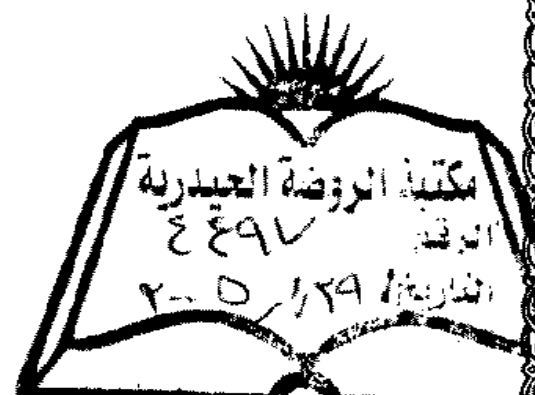 مكتبة الروضة الحيدرية
الرقم ٤٤٩٧
التاريخ ٢٩/١/٢٠٠٥